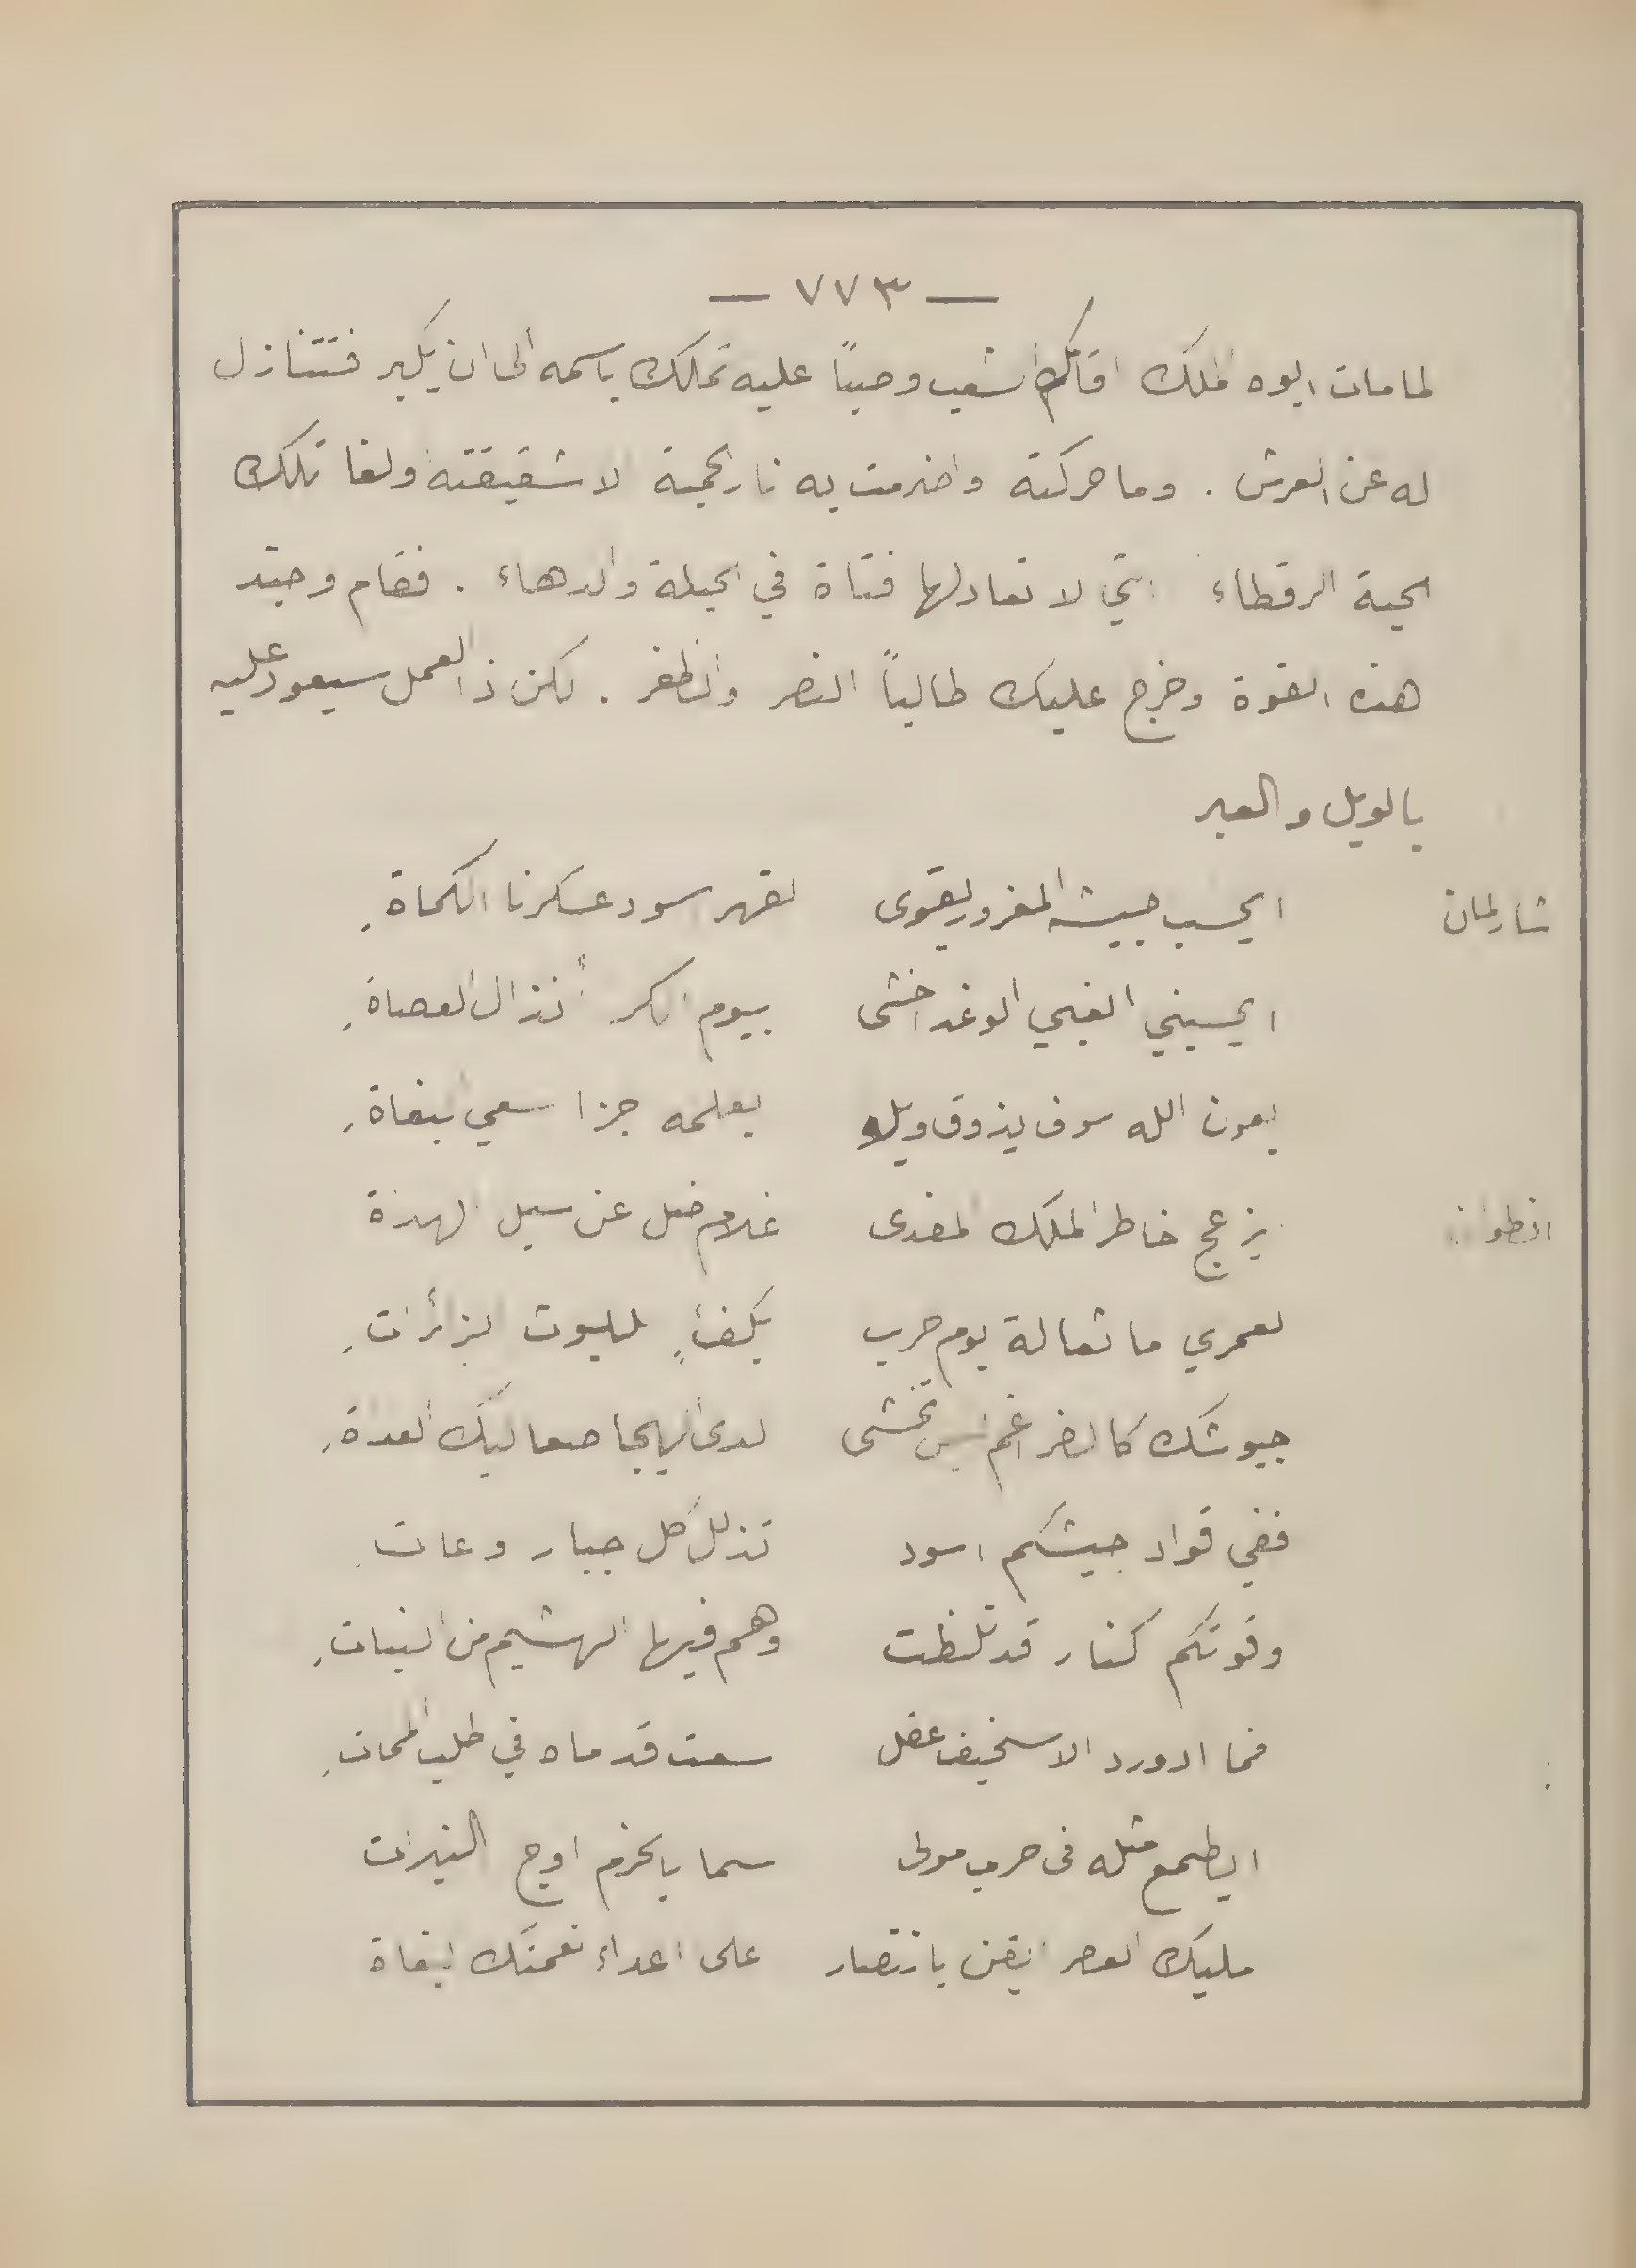 — ٧٧٣ —
لما مات ابوه الملك اقامكم الشعب وصياً عليه تملك باسمه الى ان يكبر فتتنازل
له عن العرش . وما حركته واضرمت به نار الحمية الا شقيقته ولفا تلك
الحية الرقطاء التي لا تعادلها فتاة في الحيلة والدهاء . فقام وحشد
هذه القوة وخرج عليك طالباً النصر والظفر . لكن ذا العمل سيعود عليه
بالويل والعبر
شارلمان ايحسب جيشه المغرور يقوى لقهر اسود عسكرنا الكماةِ
ايحسبني الغبي الوغد اخشى بيوم الكر أنذال العصاةِ
بعون الله سوف يذوق ويلا يعلمه جزا سعي البغاةِ
انطوان يزعج خاطر الملك المفدى غلام ضل عن سبل الهداة
لعمري ما ثعالة يوم حرب بكفءٍ لليوث الزأراتِ
جيوشك كالضراغم ليس تخشى لدى الهيجا صعاليك العداةِ
ففي قواد جيشكم اسود تذلل كل جبار وعاتِ
وقوتكم كنار قد تلظت وهم فيها الهشيم من النباتِ
فما ادورد الا سخيف عقل سعت قدماه في طلب المماتِ
ايطمع مثله في حرب مولى سما بالحزم اوج النيرات
مليك العصر ايقن بانتصار على اعداء نعمتك البغاة